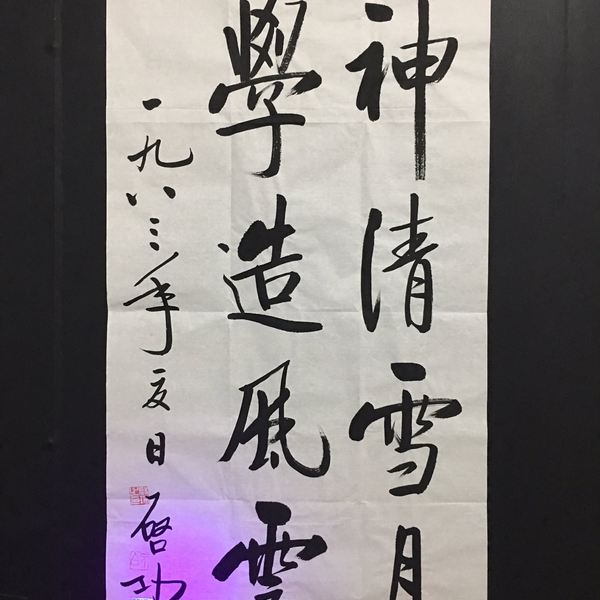 神清雪月
學造風雲
一九八三年夏日 啓功